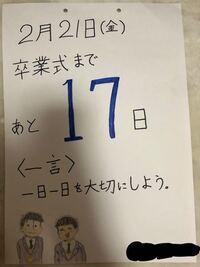 2月21日(金)
卒業式まで
あと 17日
〈一言〉
一日一日を大切にしよう。